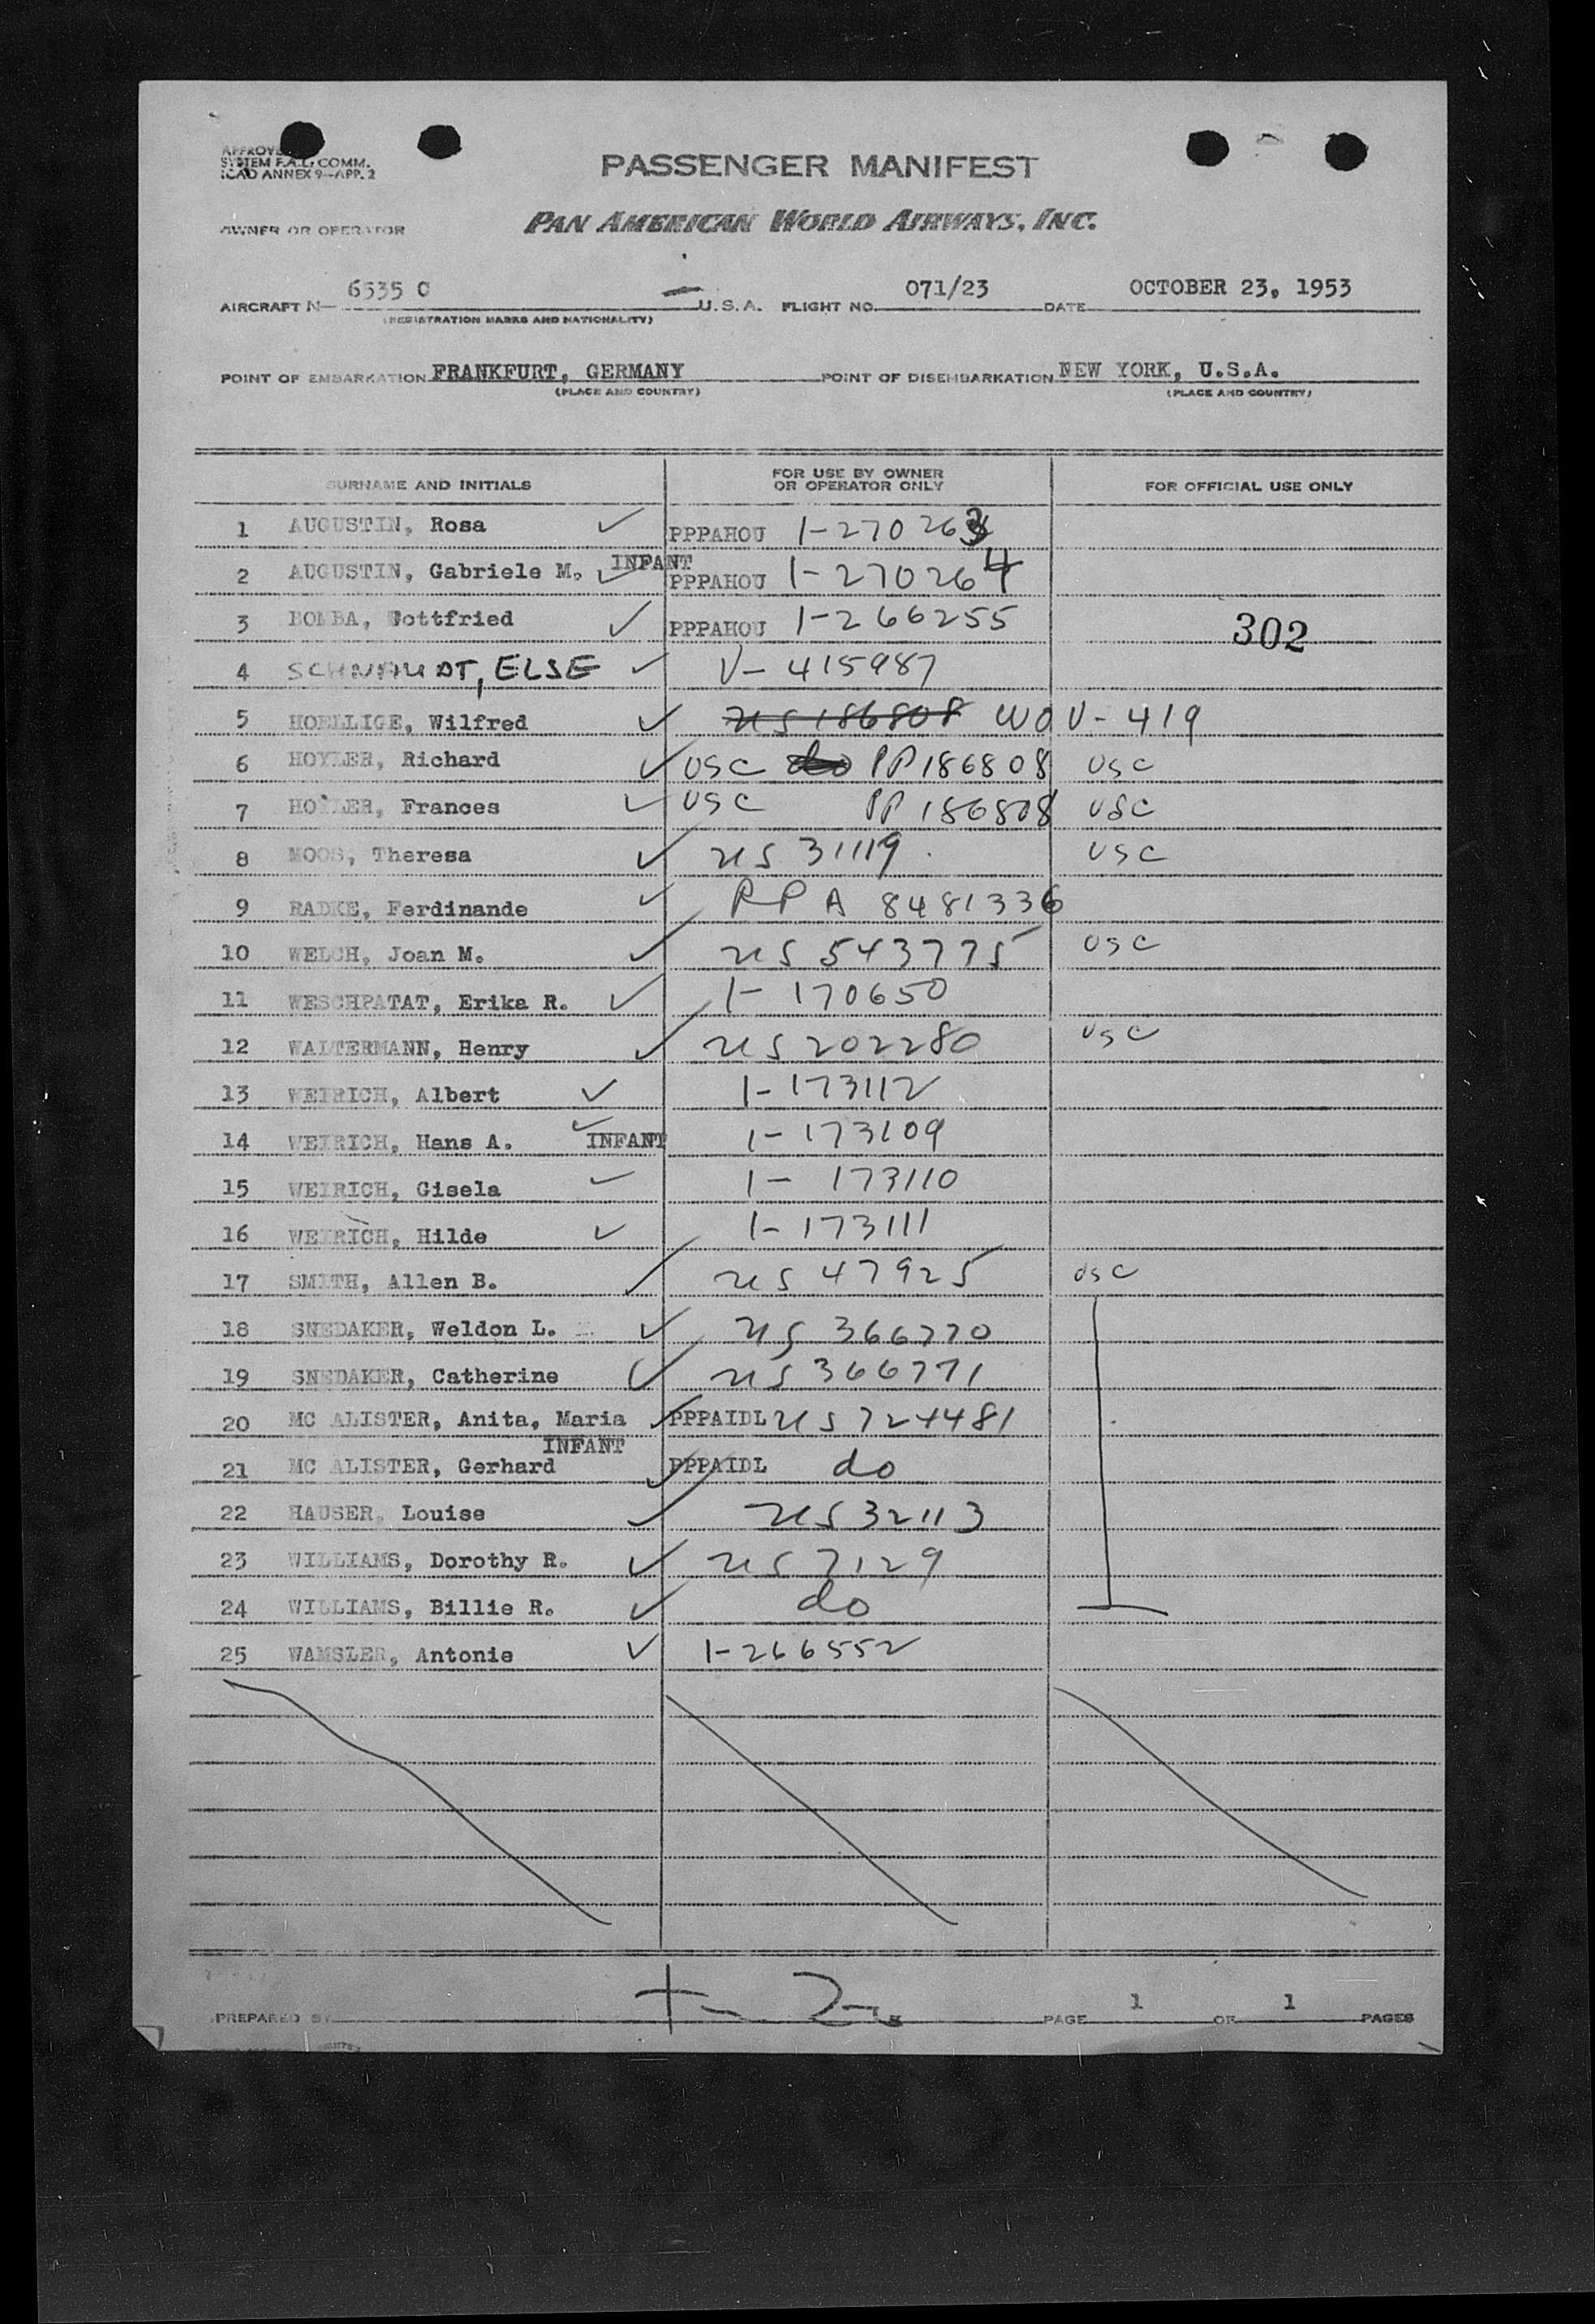 APPROVED
SYSTEM F.A.L. COMM.
ICAO ANNEX 9-APP. 2
PASSENGER MANIFEST
OWNER OR OPERATOR PAN AMERICAN WORLD AIRWAYS, INC.
AIRCRAFT N- 6535 C U.S.A. FLIGHT NO. 071/23 DATE OCTOBER 23, 1953
(REGISTRATION MARKS AND NATIONALITY)
POINT OF EMBARKATION FRANKFURT, GERMANY POINT OF DISEMBARKATION NEW YORK, U.S.A.
(PLACE AND COUNTRY) (PLACE AND COUNTRY)
SURNAME AND INITIALS FOR USE BY OWNER OR OPERATOR ONLY FOR OFFICIAL USE ONLY
1 AUGUSTIN, Rosa PPPAHOU 1-270263
2 AUGUSTIN, Gabriele M. INFANT PPPAHOU 1-270264
3 BOMBA, Gottfried PPPAHOU 1-266255 302
4 SCHNAUDT, ELSE V-415987
5 HOELLIGE, Wilfred US186808 WO V-419
6 HOYLER, Richard USC do PP186808 USC
7 HOYLER, Frances USC PP 186808 USC
8 MOOS, Theresa US 31119 USC
9 RADKE, Ferdinande RPA 8481336
10 WELCH, Joan M. US 543775 USC
11 WESCHPATAT, Erika R. 1-170650
12 WALTERMANN, Henry US 202280 USC
13 WEIRICH, Albert 1-173112
14 WEIRICH, Hans A. INFANT 1-173109
15 WEIRICH, Gisela 1-173110
16 WEIRICH, Hilde 1-173111
17 SMITH, Allen B. US 47925 USC
18 SNEDAKER, Weldon L. US 366770
19 SNEDAKER, Catherine US 366771
20 MC ALISTER, Anita, Maria PPPAIDL US 724481
INFANT
21 MC ALISTER, Gerhard PPPAIDL do
22 HAUSER, Louise US 32113
23 WILLIAMS, Dorothy R. US 7129
24 WILLIAMS, Billie R. do
25 WAMSLER, Antonie 1-266552
PREPARED BY PAGE 1 OF 1 PAGES